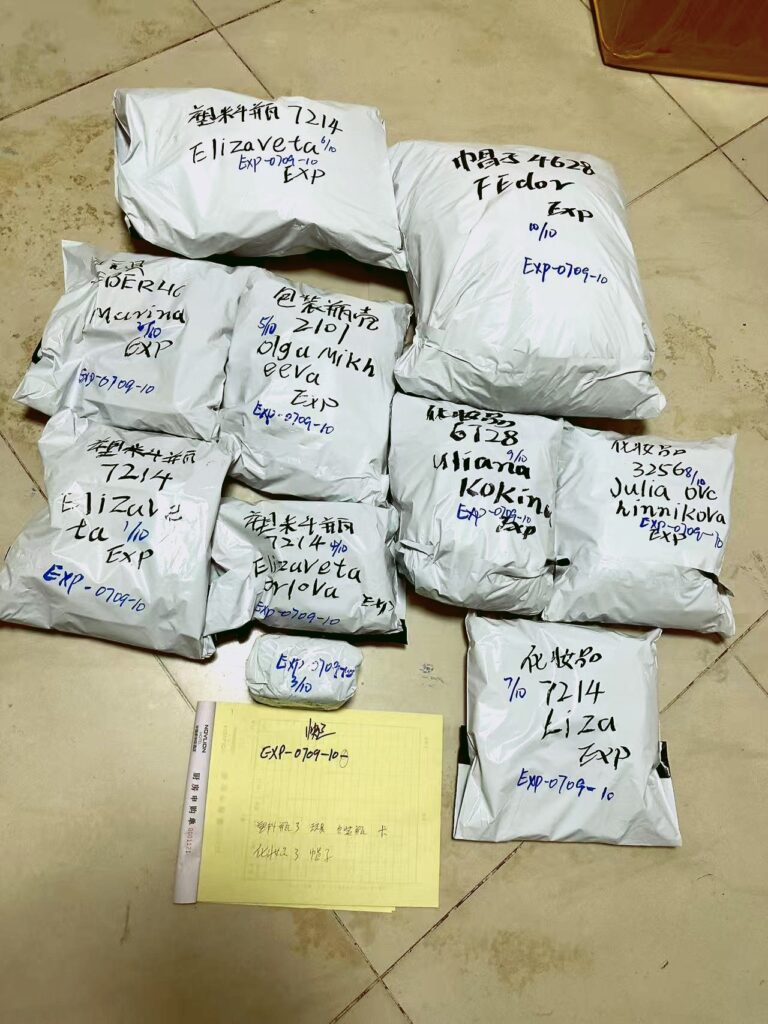 塑料瓶 7214
Elizaveta 6/10
EXP-0709-10
EXP
帽子 4628
FEdor
Exp
10/10
EXP-0709-10
Marina
EXP
EXP-0709-10
包装瓶壳
5/10 2101
olga Mikh
eeva
EXP
EXP-0709-10
塑料瓶
7214
Elizave
ta 1/10
EXP
EXP-0709-10
塑料瓶
7214 4/10
Elizaveta
orlova
EXP-0709-10
化妆品
6728
9/10
uliana
KoKina
EXP-0709-10
Exp
化妆品
3256 8/10
Julia ovc
hinnikova
EXP-0709-10
EXP
EXP-0709-10
3/10
化妆品
7/10 7214
Liza
EXP
EXP-0709-10
EXP-0709-10-
塑料瓶 3 玩具 包装瓶 卡
化妆品 3 帽子
NOVLION
厨房申购单 0001121